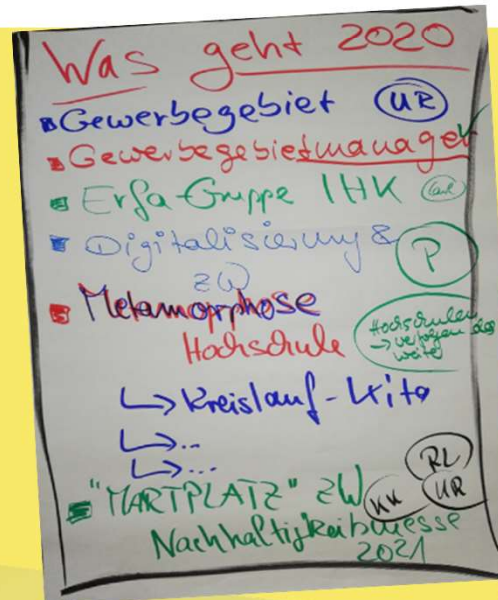 Was geht 2020
Gewerbegebiet UR
Gewerbegebietmanager
Erfa-Gruppe IHK
Digitalisierung & P
ZW
Metamorphose
Hochschule Hochschulen
→ verfolgen das
weiter
↳ Kreislauf-Kita
↳...
↳...
RL
"MARTPLATZ" ZW KK UR
Nachhaltigkeitsmesse
2021